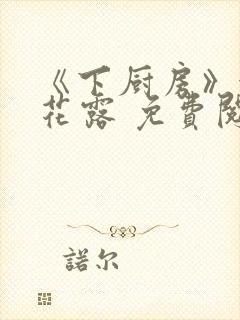 《下厨房》
花露 免費閱
諾尔